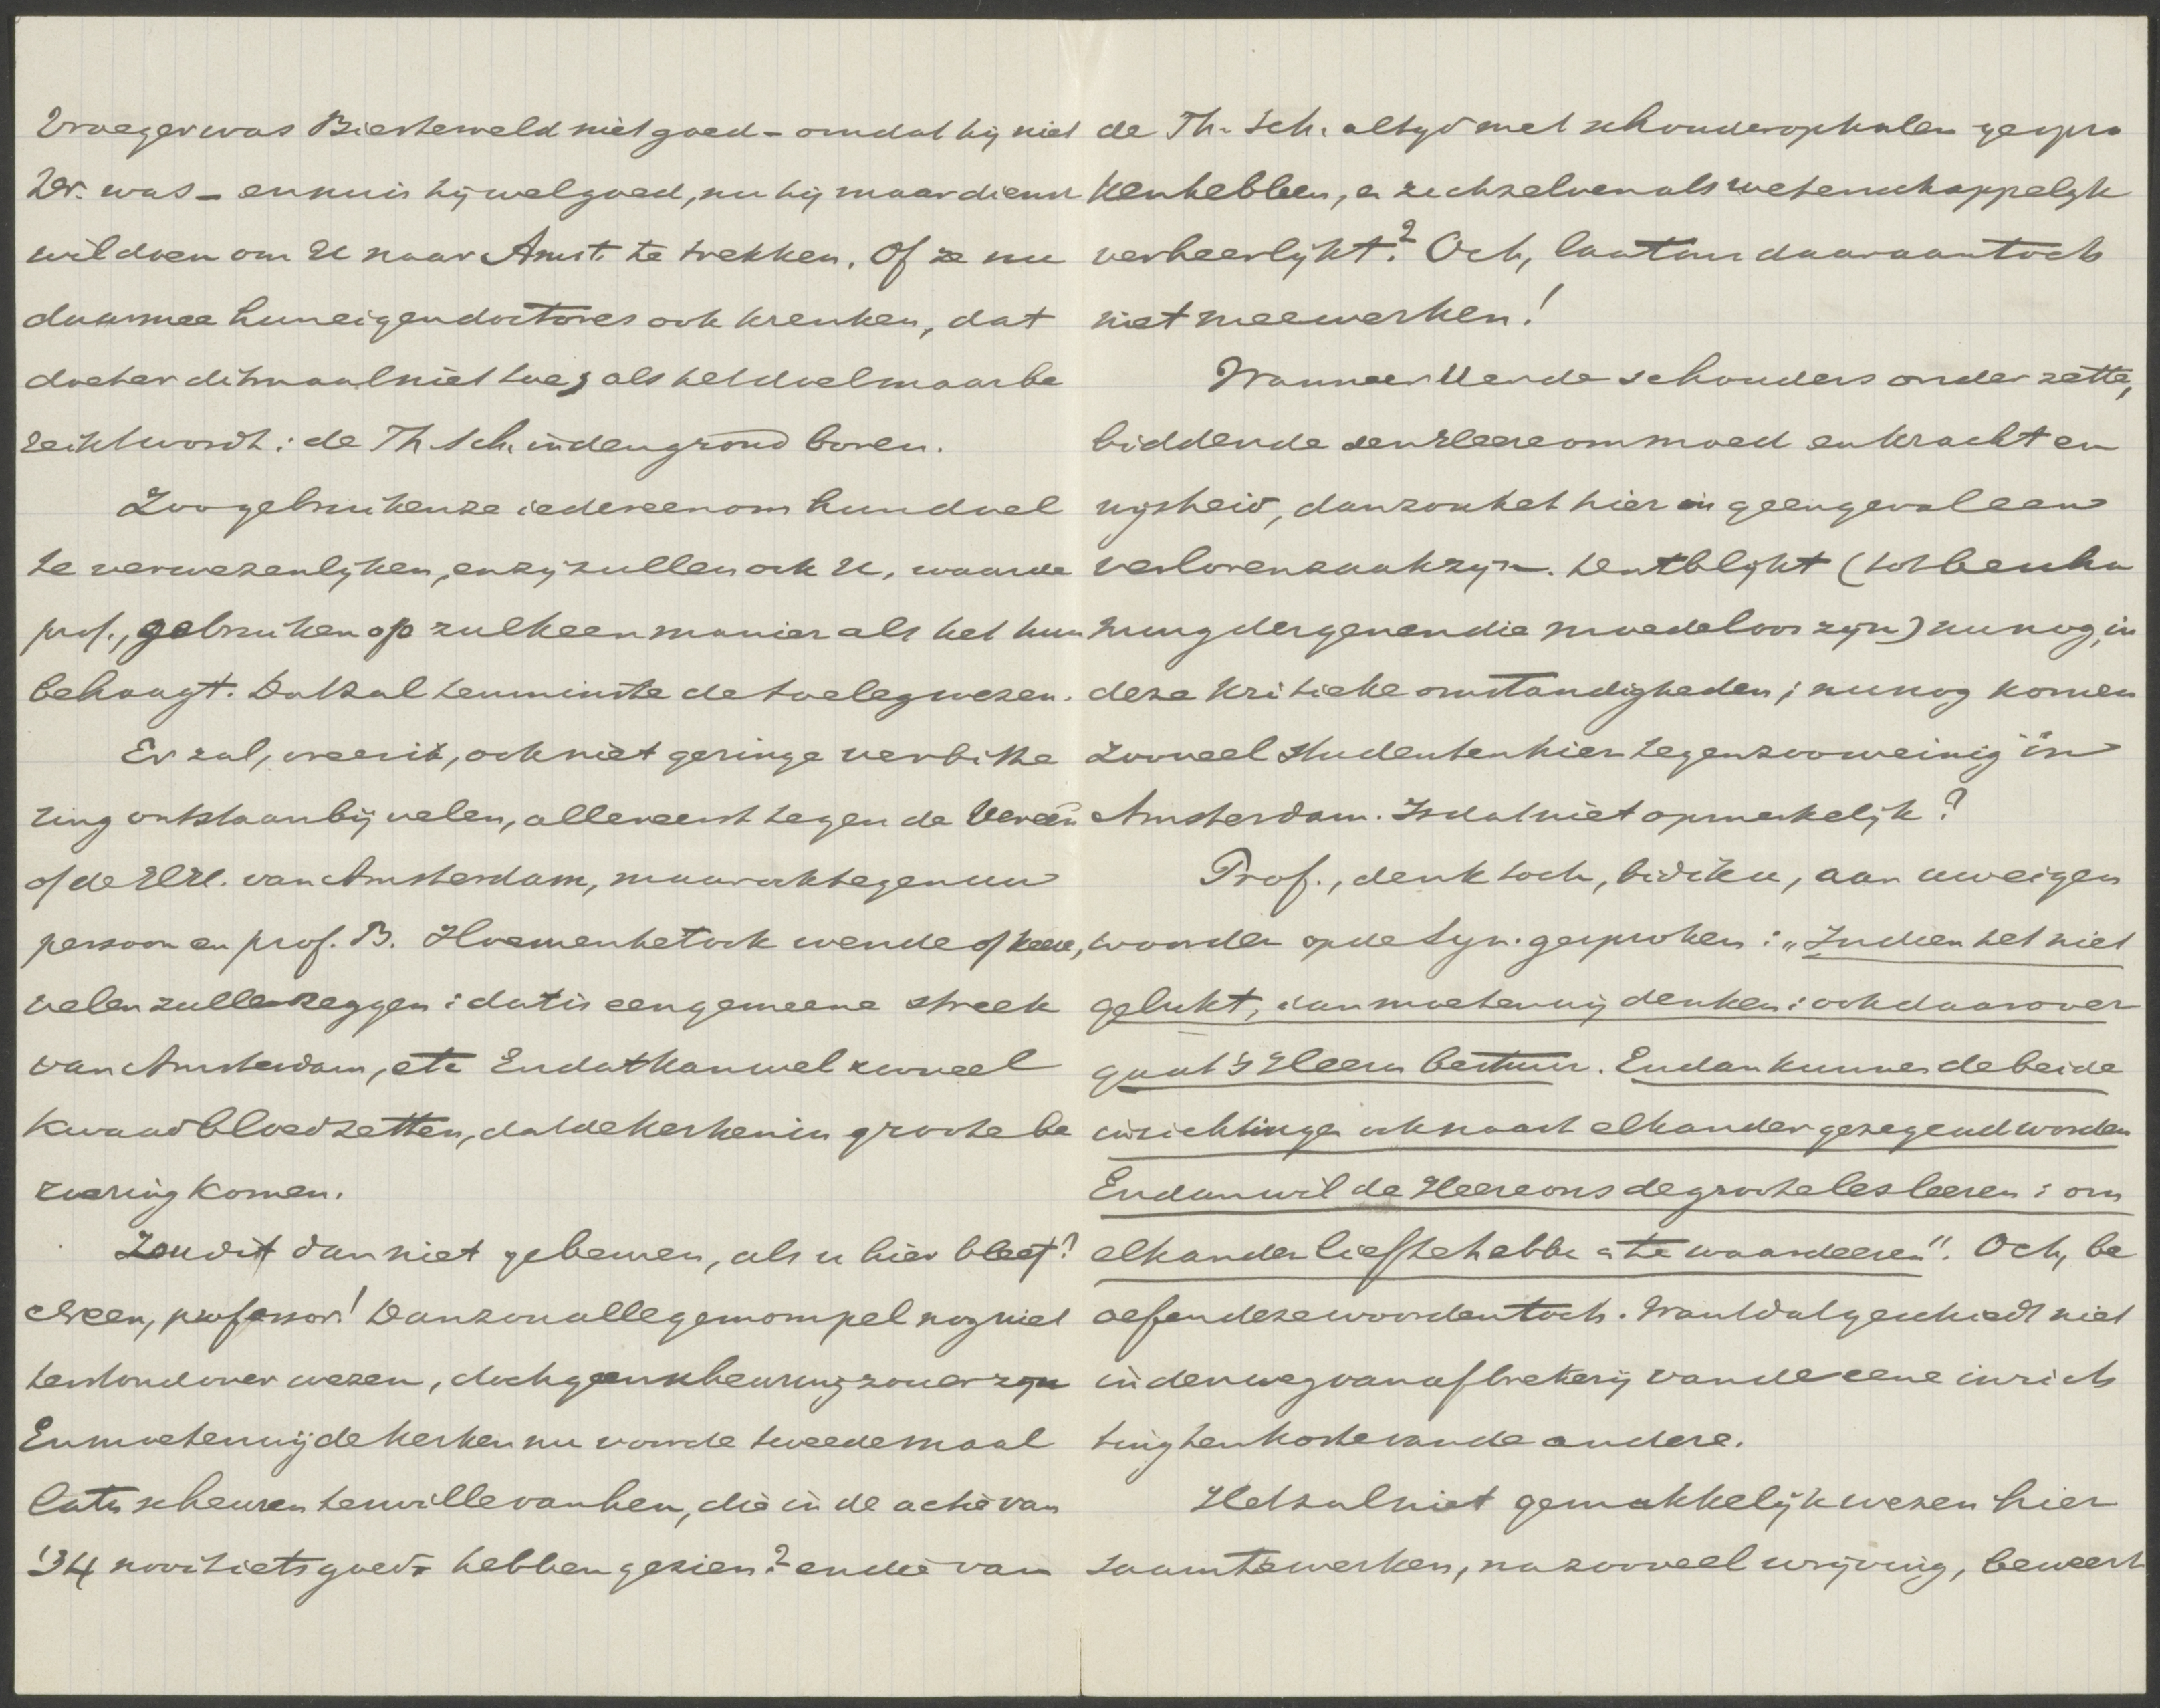 Vroeger was Biesterveld niet goed – omdat hij niet
Dr. was – en nu is hij wel goed, nu hij maar dienst
wil doen om U naar Amst. te trekken. Of ze nu
daarmee hun eigen doctores ook krenken, dat
doet er ditmaal niet toe, als het doel maar be
reikt wordt: de Th. Sch. in den grond boren.
Zoo gebruiken ze iedereen om hun doel
te verwezenlijken, en zij zullen ook U, waarde
prof., gebruiken op zulk een manier als het hun
behaagt. Dat zal tenminste de toeleg wezen.
Er zal, vrees ik, ook niet geringe verbitte
ring ontstaan bij velen, allereerst tegen de Vereen
of de HH. van Amsterdam, maar ook tegen uw
persoon en prof. B. Hoe men het ook wende of keere,
velen zullen zeggen: dat is een gemeene streek
van Amsterdam, etc. En dat kan wel zooveel
kwaad bloed zetten, dat de kerken in groote be
roering komen.
Zou dit dan niet gebeuren, als u hier bleef?
Neen, professor! Dan zou alle gemompel nog niet
terstond over wezen, doch geen scheuring zou er zijn
En moeten wij de kerken nu voor de tweede maal
laten scheuren ter wille van hen, die in de actie van
'34 nooit iets goeds hebben gezien? en die van
de Th. Sch. altijd met schouderophalen gespro
ken hebben, en zichzelven als wetenschappelijk
verheerlijkt? Och, laat ons daaraan toch
niet meewerken!
Wanneer U er de schouders onder zette,
biddende den Heere om moed en kracht en
wijsheid, dan zou het hier in geen geval een
verloren zaak zijn. Dat blijkt (tot bescha
ming dergenen die moedeloos zijn) nu nog, in
deze kritieke omstandigheden; nu nog komen
zooveel studenten hier tegen zoo weinig in
Amsterdam. Is dat niet opmerkelijk?
Prof., denk toch, bid ik u, aan uw eigen
woorden op de Syn. gesproken: „Indien het niet
gelukt, dan moeten wij denken: ook daarover
gaat 's Heeren bestuur. En dan kunnen de beide
inrichtingen ook naast elkander gezegend worden
En dan wil de Heere ons de groote les leeren: om
elkander lief te hebben en te waardeeren". Och, be
oefen deze woorden toch. Want dat geschiedt niet
in den weg van afbrekerij van de eene inrich
ting ten koste van de andere.
Het zal niet gemakkelijk wezen hier
saam te werken, na zooveel wrijving, beweert